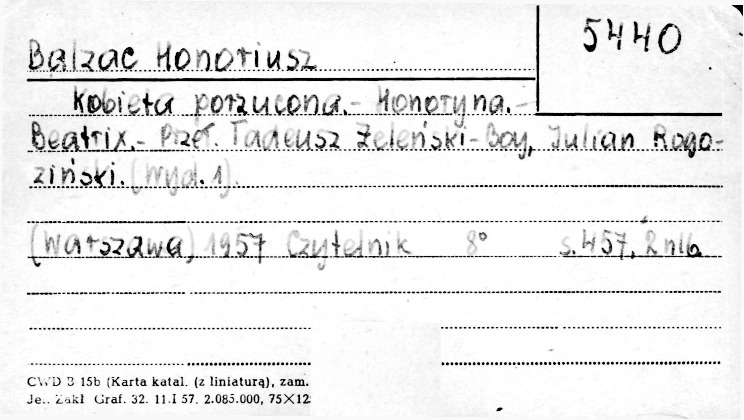 5440
Balzac Honoriusz
Kobieta porzucona.- Honoryna.-
Beatrix.- Przeł. Tadeusz Żeleński-Boy, Julian Rogo-
ziński. (Wyd. 1).
(Warszawa) 1957 Czytelnik 8° s. 457, 2 nlb
CWD B 15b (Karta katal. (z liniaturą), zam.
Jel. Zakł Graf. 32. 11.I 57. 2.085.000, 75×12